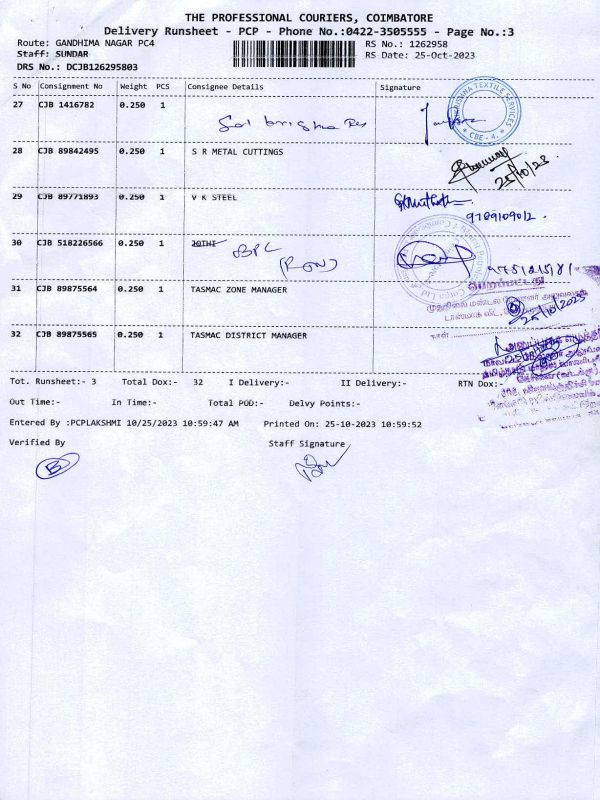 THE PROFESSIONAL COURIERS, COIMBATORE
Delivery Runsheet - PCP - Phone No.:0422-3505555 - Page No.:3
Route: GANDHIMA NAGAR PC4 RS No.: 1262958
Staff: SUNDAR RS Date: 25-Oct-2023
DRS No.: DCJB126295803
S No Consignment No Weight PCS Consignee Details Signature
27 CJB 1416782 0.250 1
TEXTILE SERVICES
* CBE - 4. *
28 CJB 89842495 0.250 1 S R METAL CUTTINGS
25/10/23
29 CJB 89771893 0.250 1 V K STEEL
9789109012.
30 CJB 518226566 0.250 1 JOTHI BPL
(RON)
31 CJB 89875564 0.250 1 TASMAC ZONE MANAGER
பெறப்பட்டது
25/10/2023
32 CJB 89875565 0.250 1 TASMAC DISTRICT MANAGER
நாள்
Tot. Runsheet:- 3 Total Dox:- 32 I Delivery:- II Delivery:- RTN Dox:-
Out Time:- In Time:- Total POD:- Delvy Points:-
Entered By :PCPLAKSHMI 10/25/2023 10:59:47 AM Printed On: 25-10-2023 10:59:52
Verified By Staff Signature